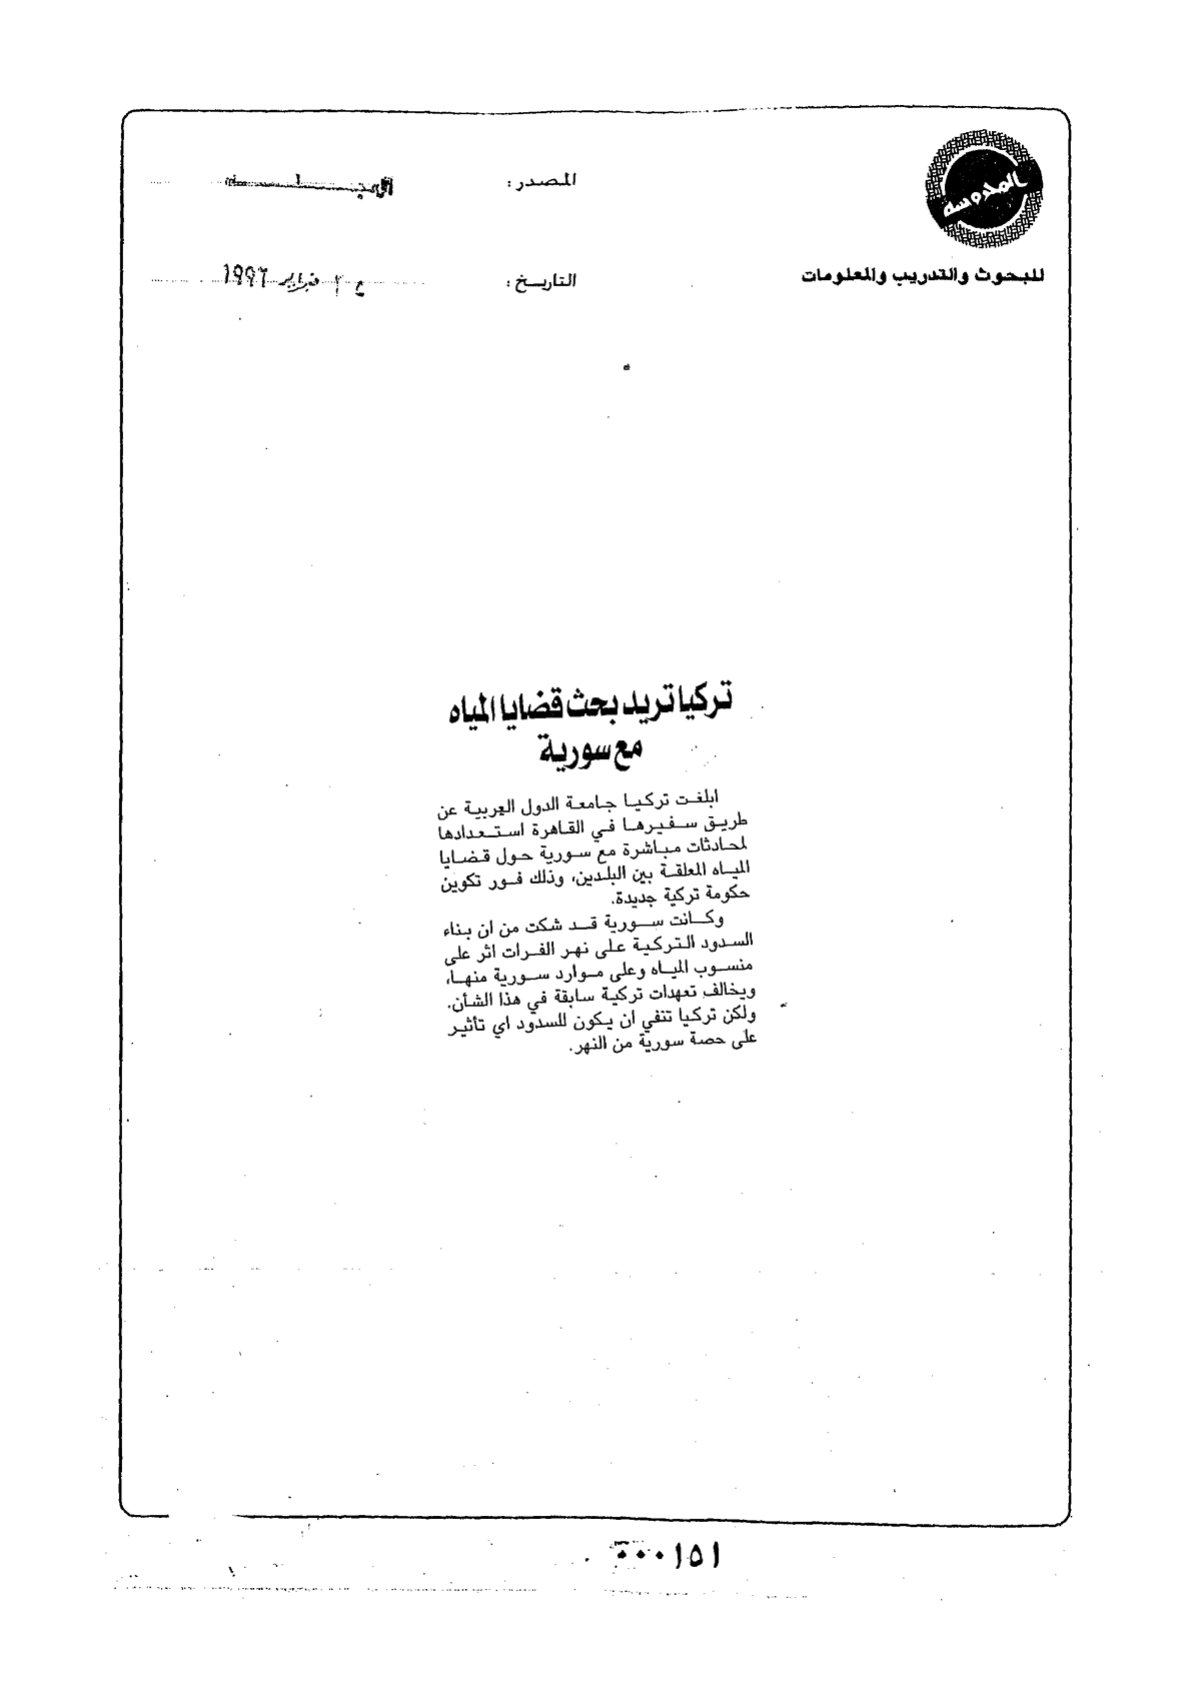 المحروسة
للبحوث والتدريب والمعلومات
المصدر:
المجلة
التاريخ:
فبراير ١٩٩٦
تركيا تريد بحث قضايا المياه
مع سورية
ابلغت تركيا جامعة الدول العربية عن
طريق سفيرها في القاهرة استعدادها
لمحادثات مباشرة مع سورية حول قضايا
المياه المعلقة بين البلدين، وذلك فور تكوين
حكومة تركية جديدة.
وكانت سورية قد شكت من ان بناء
السدود التركية على نهر الفرات اثر على
منسوب المياه وعلى موارد سورية منها،
ويخالف تعهدات تركية سابقة في هذا الشأن.
ولكن تركيا تنفي ان يكون للسدود اي تأثير
على حصة سورية من النهر.